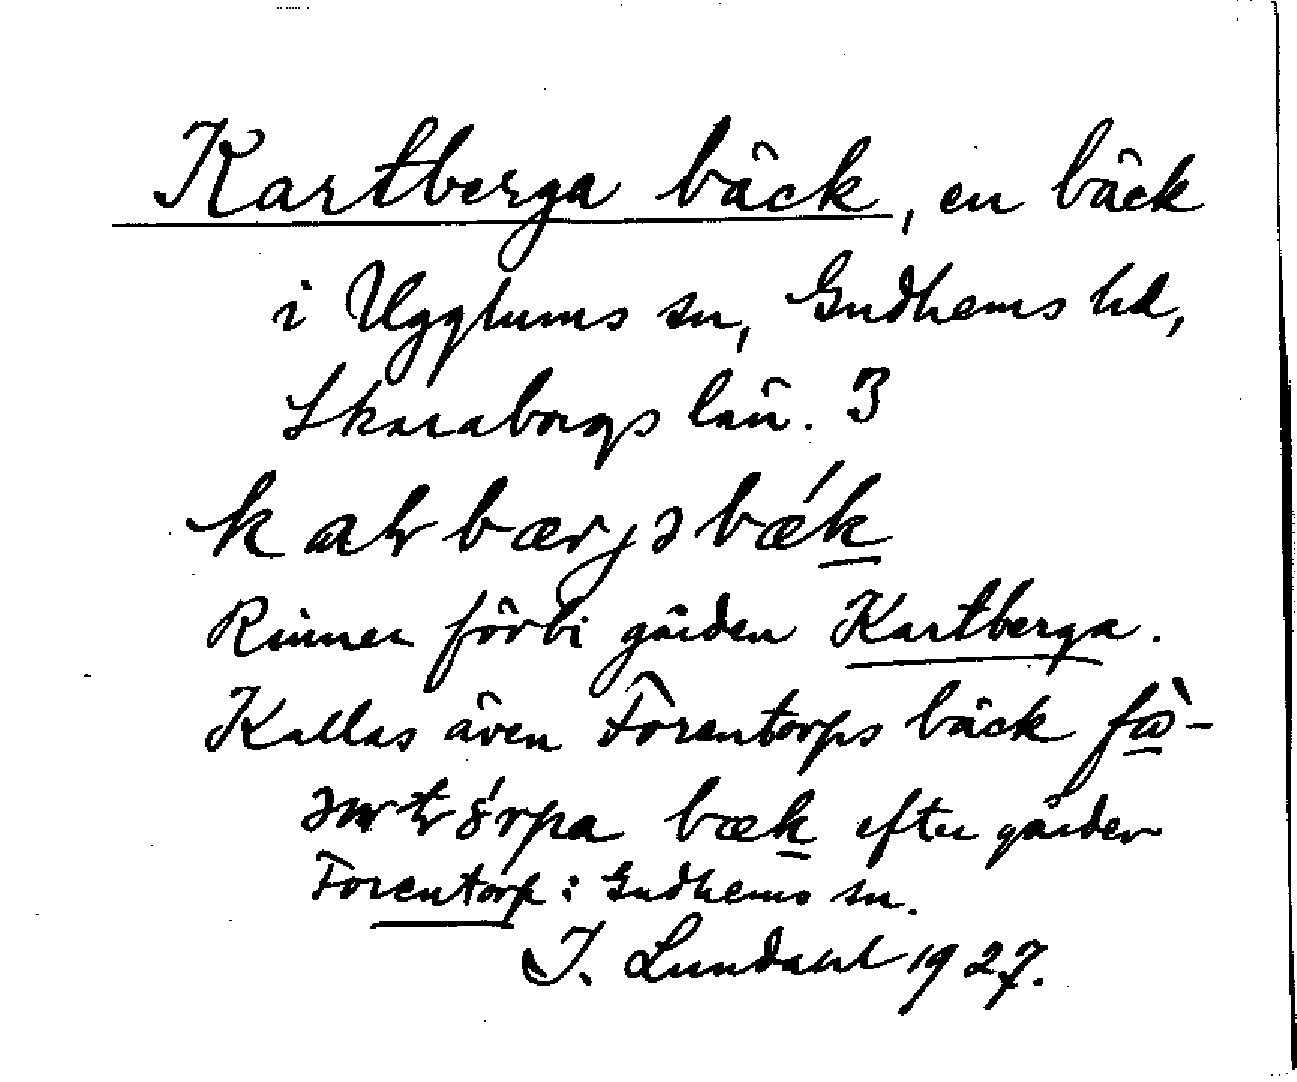 Kartberga bäck, en bäck
i Ugglums sn, Gudhems hd,
Skaraborgs län. 3
Rinner förbi gården Kartberga.
Kallas även Forentorps bäck
bæk efter gården
Forentorp i Gudhems sn.
I. Lundahl 1927.